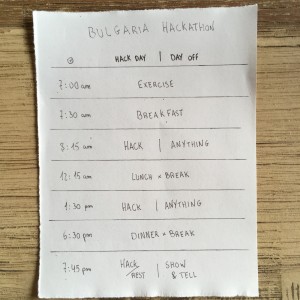 BULGARIA HACKATHON
HACK DAY | DAY OFF
7:00 am EXERCISE
7:30 am BREAKFAST
8:15 am HACK | ANYTHING
12:15 am LUNCH & BREAK
1:30 pm HACK | ANYTHING
6:30 pm DINNER & BREAK
7:45 pm HACK / REST | SHOW & TELL